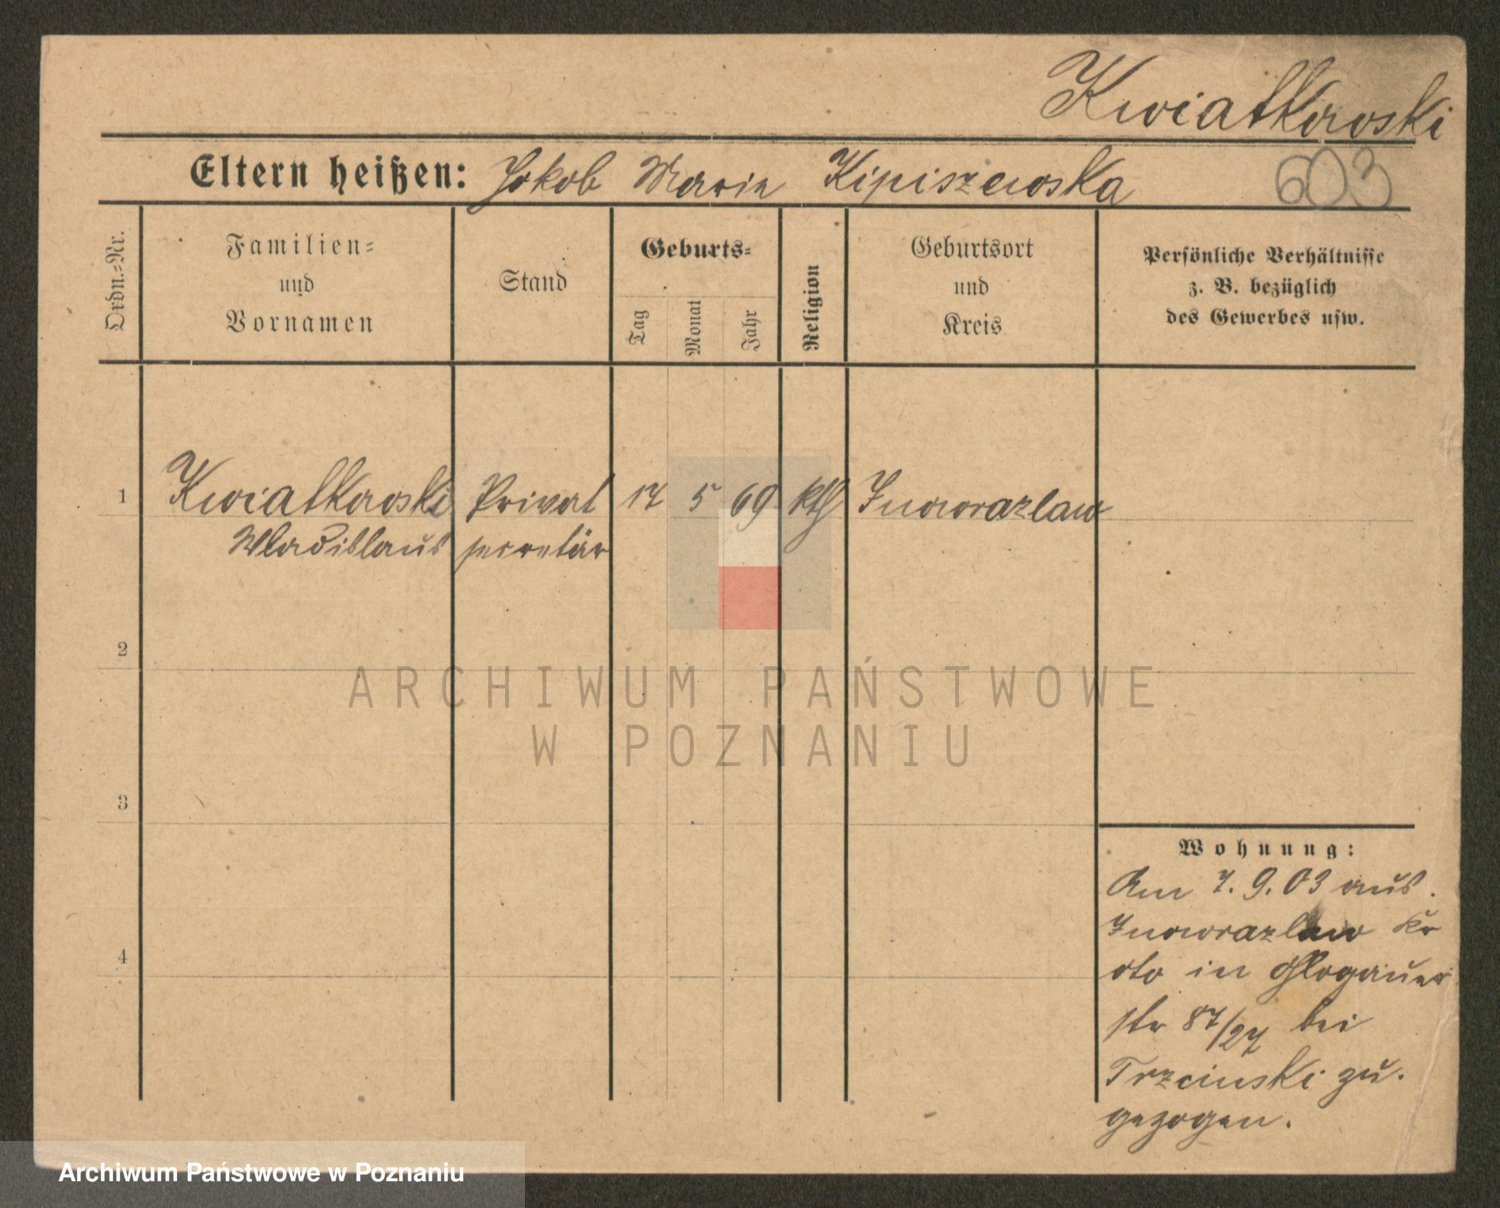 Kwiatkowski
Eltern heißen: Jakob Maria Kipiszewska
603
Ordn.-Nr.
Familien-
und
Vornamen
Stand
Geburts-
Tag
Monat
Jahr
Religion
Geburtsort
und
Kreis
Persönliche Verhältnisse
z. B. bezüglich
des Gewerbes usw.
1 Kwiatkowski Privat 17 5 69 kth Inowrazlaw
Wladislaus secretär
2
3
4
Wohnung:
Am 7. 9. 03 aus
Inowrazlaw Kr
oto in Glogauer
str 87/27 bei
Trzcinski zu-
gezogen.
ARCHIWUM PAŃSTWOWE
W POZNANIU
Archiwum Państwowe w Poznaniu